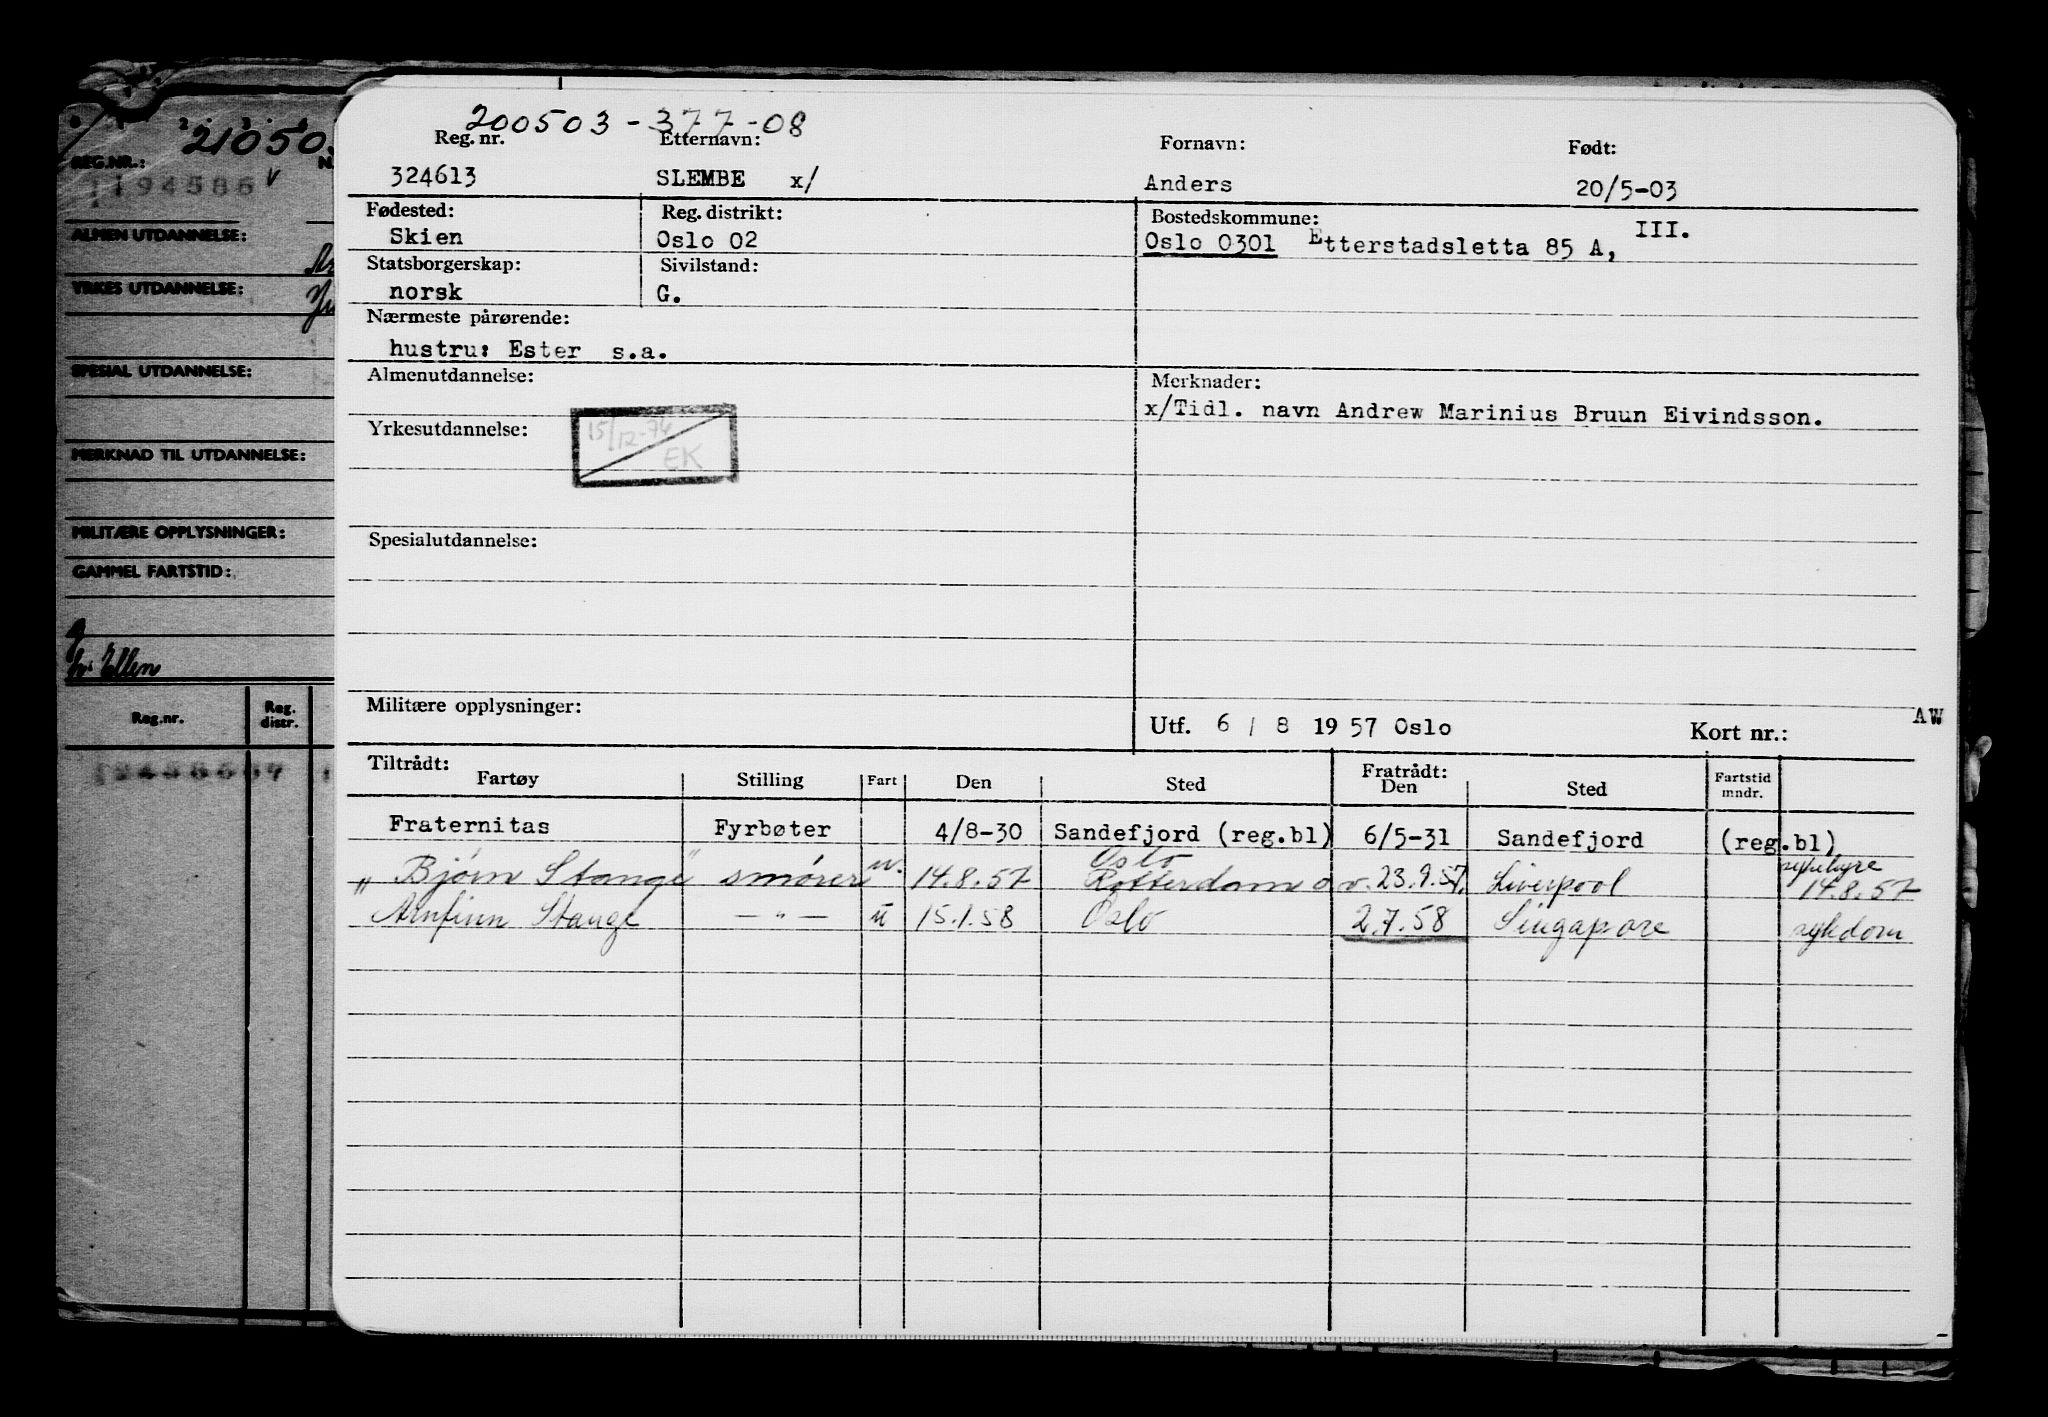 200503-377-08
Reg. nr. Etternavn: Fornavn: Født:
324613 SLEMBE x/ Anders 20/5-03
Fødested: Reg. distrikt: Bostedskommune:
Skien Oslo 02 Oslo 0301 Etterstadsletta 85 A, III.
Statsborgerskap: Sivilstand:
norsk G.
Nærmeste pårørende:
hustru: Ester s.a.
Almenutdannelse: Merknader:
x/Tidl. navn Andrew Marinius Bruun Eivindsson.
Yrkesutdannelse:
15/12-74
EK
Spesialutdannelse:
Militære opplysninger:
Utf. 6 / 8 1957 Oslo Kort nr.: AW
Tiltrådt: Fratrådt:
Fartøy Stilling Fart Den Sted Den Sted Fartstid mndr.
Fraternitas Fyrbøter 4/8-30 Sandefjord (reg.bl) 6/5-31 Sandefjord (reg.bl)
Oslo
"Bjørn Stange" smører u. 14.8.57 Rotterdam 23.9.57. Liverpool 14.8.57
Arnfinn Stange — " — u 15.1.58 Oslo 2.7.58 Singapore sykdom
21050
REG.NR.:
1194586
ALMEN UTDANNELSE:
YRKES UTDANNELSE:
SPESIAL UTDANNELSE:
MERKNAD TIL UTDANNELSE:
MILITÆRE OPPLYSNINGER:
GAMMEL FARTSTID:
g
hu Ellen
Reg.nr. Reg. distr.